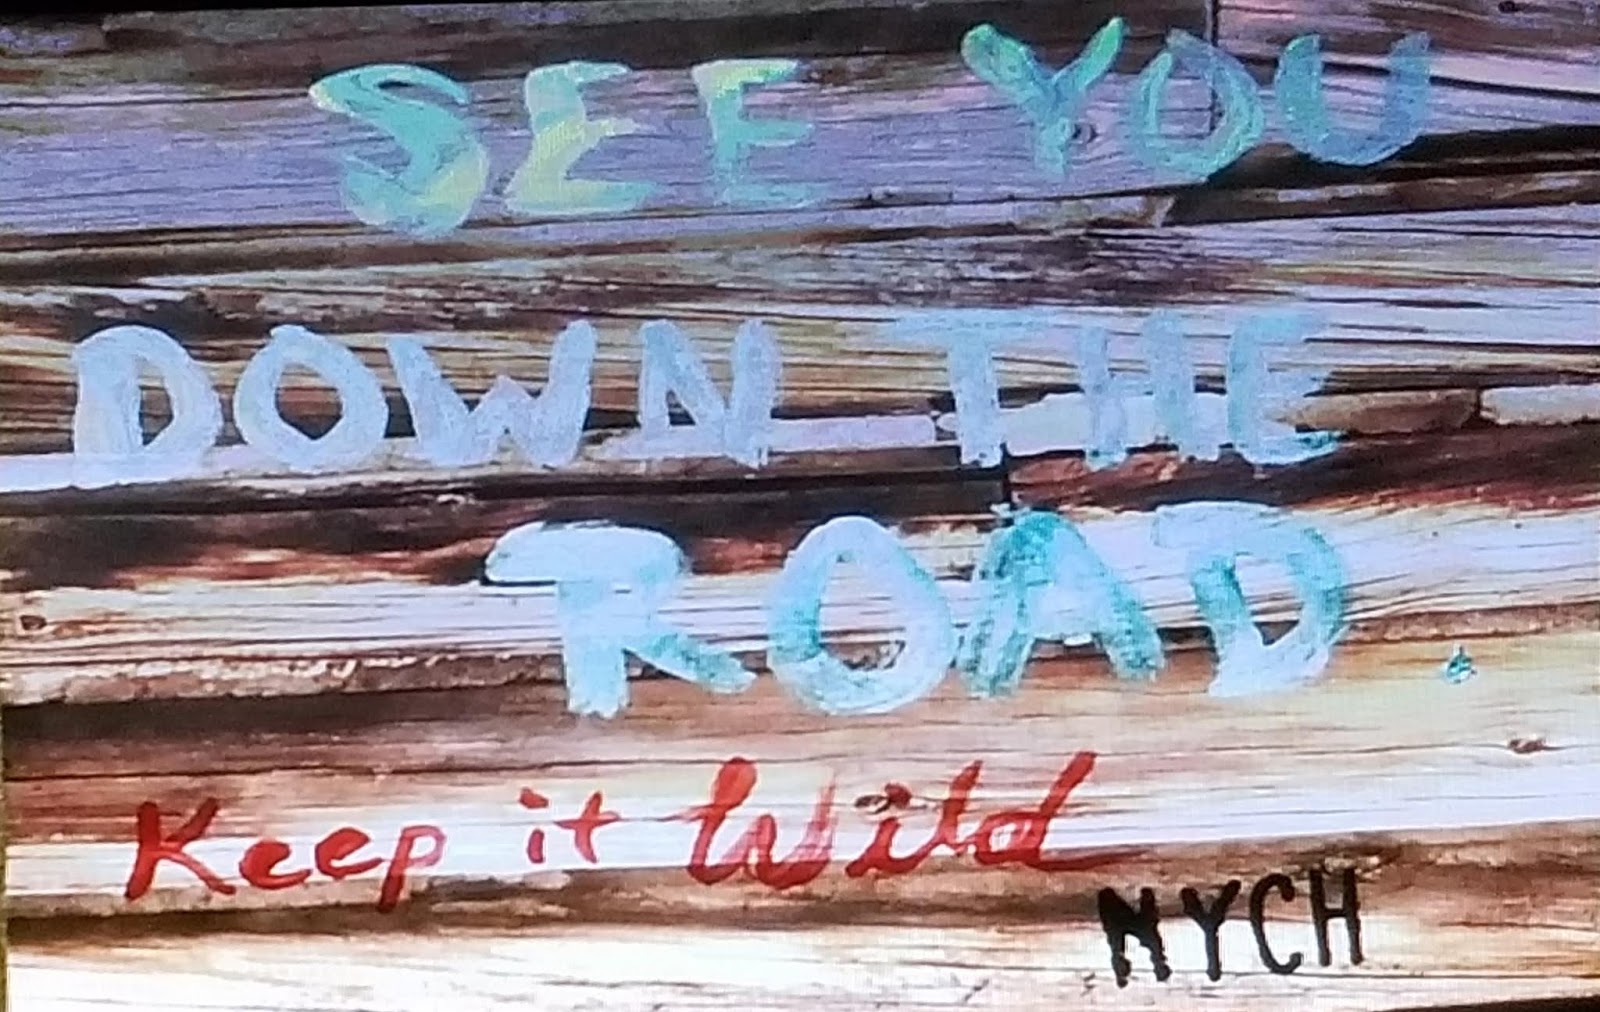 SEE YOU
DOWN THE
ROAD.
Keep it Wild
NYCH